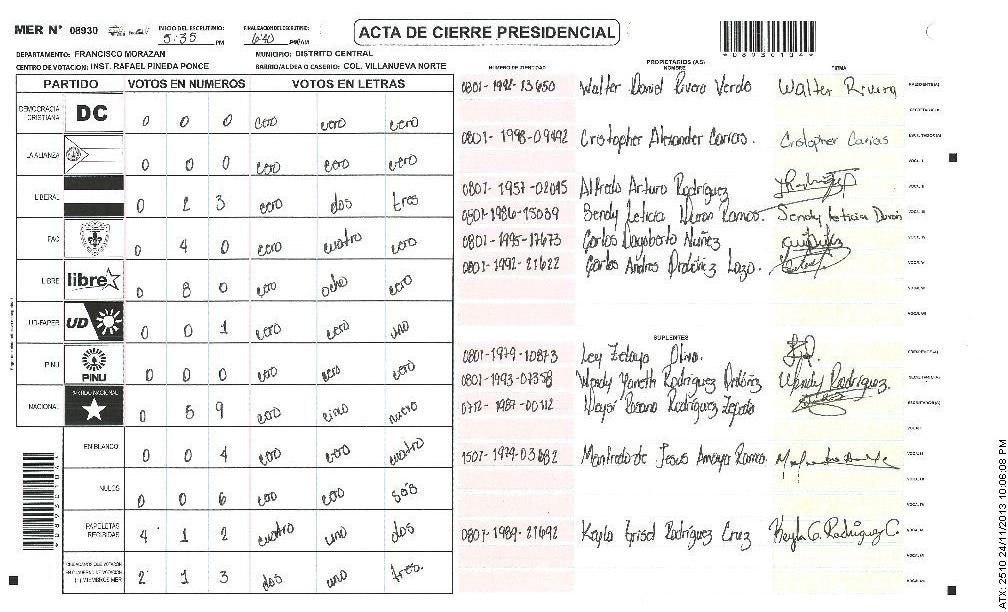 MER N° 08930
INICIO DEL ESCRUTINIO: 5:35 PM
FINALIZACION DEL ESCRUTINIO: 6:40 PM
ACTA DE CIERRE PRESIDENCIAL
DEPARTAMENTO: FRANCISCO MORAZAN
MUNICIPIO: DISTRITO CENTRAL
CENTRO DE VOTACION: INST. RAFAEL PINEDA PONCE
BARRIO/ALDEA O CASERIO: COL. VILLANUEVA NORTE
PARTIDO VOTOS EN NUMEROS VOTOS EN LETRAS
DEMOCRACIA CRISTIANA DC 0 0 0 cero cero cero
LA ALIANZA 0 0 0 cero cero cero
LIBERAL 0 2 3 cero dos tres
PAC 0 4 0 cero cuatro cero
LIBRE libre 0 8 0 cero ocho cero
UD-FAPER UD 0 0 1 cero cero uno
PINU PINU 0 0 0 cero cero cero
NACIONAL PARTIDO NACIONAL 0 5 9 cero cinco nueve
EN BLANCO 0 0 4 cero cero cuatro
NULOS 0 0 6 cero cero seis
PAPELETAS RECIBIDAS 4 1 2 cuatro uno dos
CIUDADANOS QUE VOTARON EN CUADERNO DE VOTACION (+) MIEMBROS MER 2 1 3 dos uno tres.
NUMERO DE IDENTIDAD
PROPIETARIOS (AS)
NOMBRE
FIRMA
0801-1992-13650 Walter Daniel Rivera Walter Rivera PRESIDENTE(A)
SECRETARIO(A)
0801-1998-09492 Cristopher Alexander Carias. Cristopher Carias ESCRUTADOR(A)
VOCAL I
0801-1957-02045 Alfredo Arturo Rodríguez VOCAL II
0801-1986-15039 Sendy Leticia Duron Ramos. Sendy Leticia Durón VOCAL III
0801-1995-17673 Carlos Dagoberto Nuñez VOCAL IV
0801-1992-21622 Carlos Andres Ordóñez Lazo. VOCAL V
VOCAL VI
VOCAL VII
SUPLENTES
0801-1979-10873 Ley Zelaya PRESIDENTE(A)
0801-1993-07358 Wendy Yaneth Rodríguez Ordóñez Wendy Rodríguez. SECRETARIO(A)
Rodríguez Zepeda ESCRUTADOR(A)
VOCAL I
Manfredo de Jesus Amaya Ramos. VOCAL II
VOCAL III
VOCAL IV
0801-1989-21692 Keyla Grisel Rodríguez Cruz Keyla G. Rodríguez C. VOCAL V
VOCAL VI
VOCAL VII
ATX: 2510 24/11/2013 10:06:08 PM